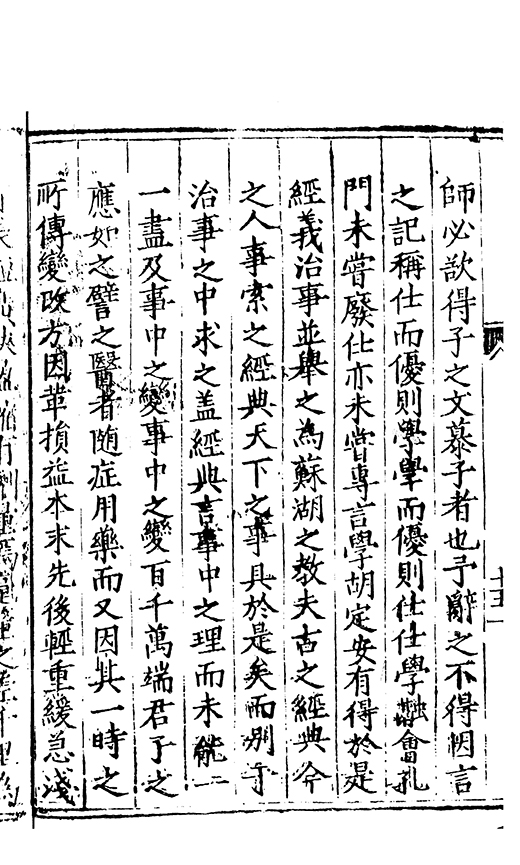 師必欲得子之文慕子者也予辭之不得因言
之記稱仕而優則學學而優則仕仕學融會孔
門未嘗廢仕亦未嘗專言學胡定安有得於是
經義治事並舉之為蘇湖之教夫古之經典今
之人事索之經典天下之事具於是矣而别于
治事之中求之盖經典言事中之理而未能一
一盡及事中之變事中之變百千萬端君子之
應如之譬之醫者随症用藥而又因其一時之
所傳變改方因革損益本末先後輕重緩急淺